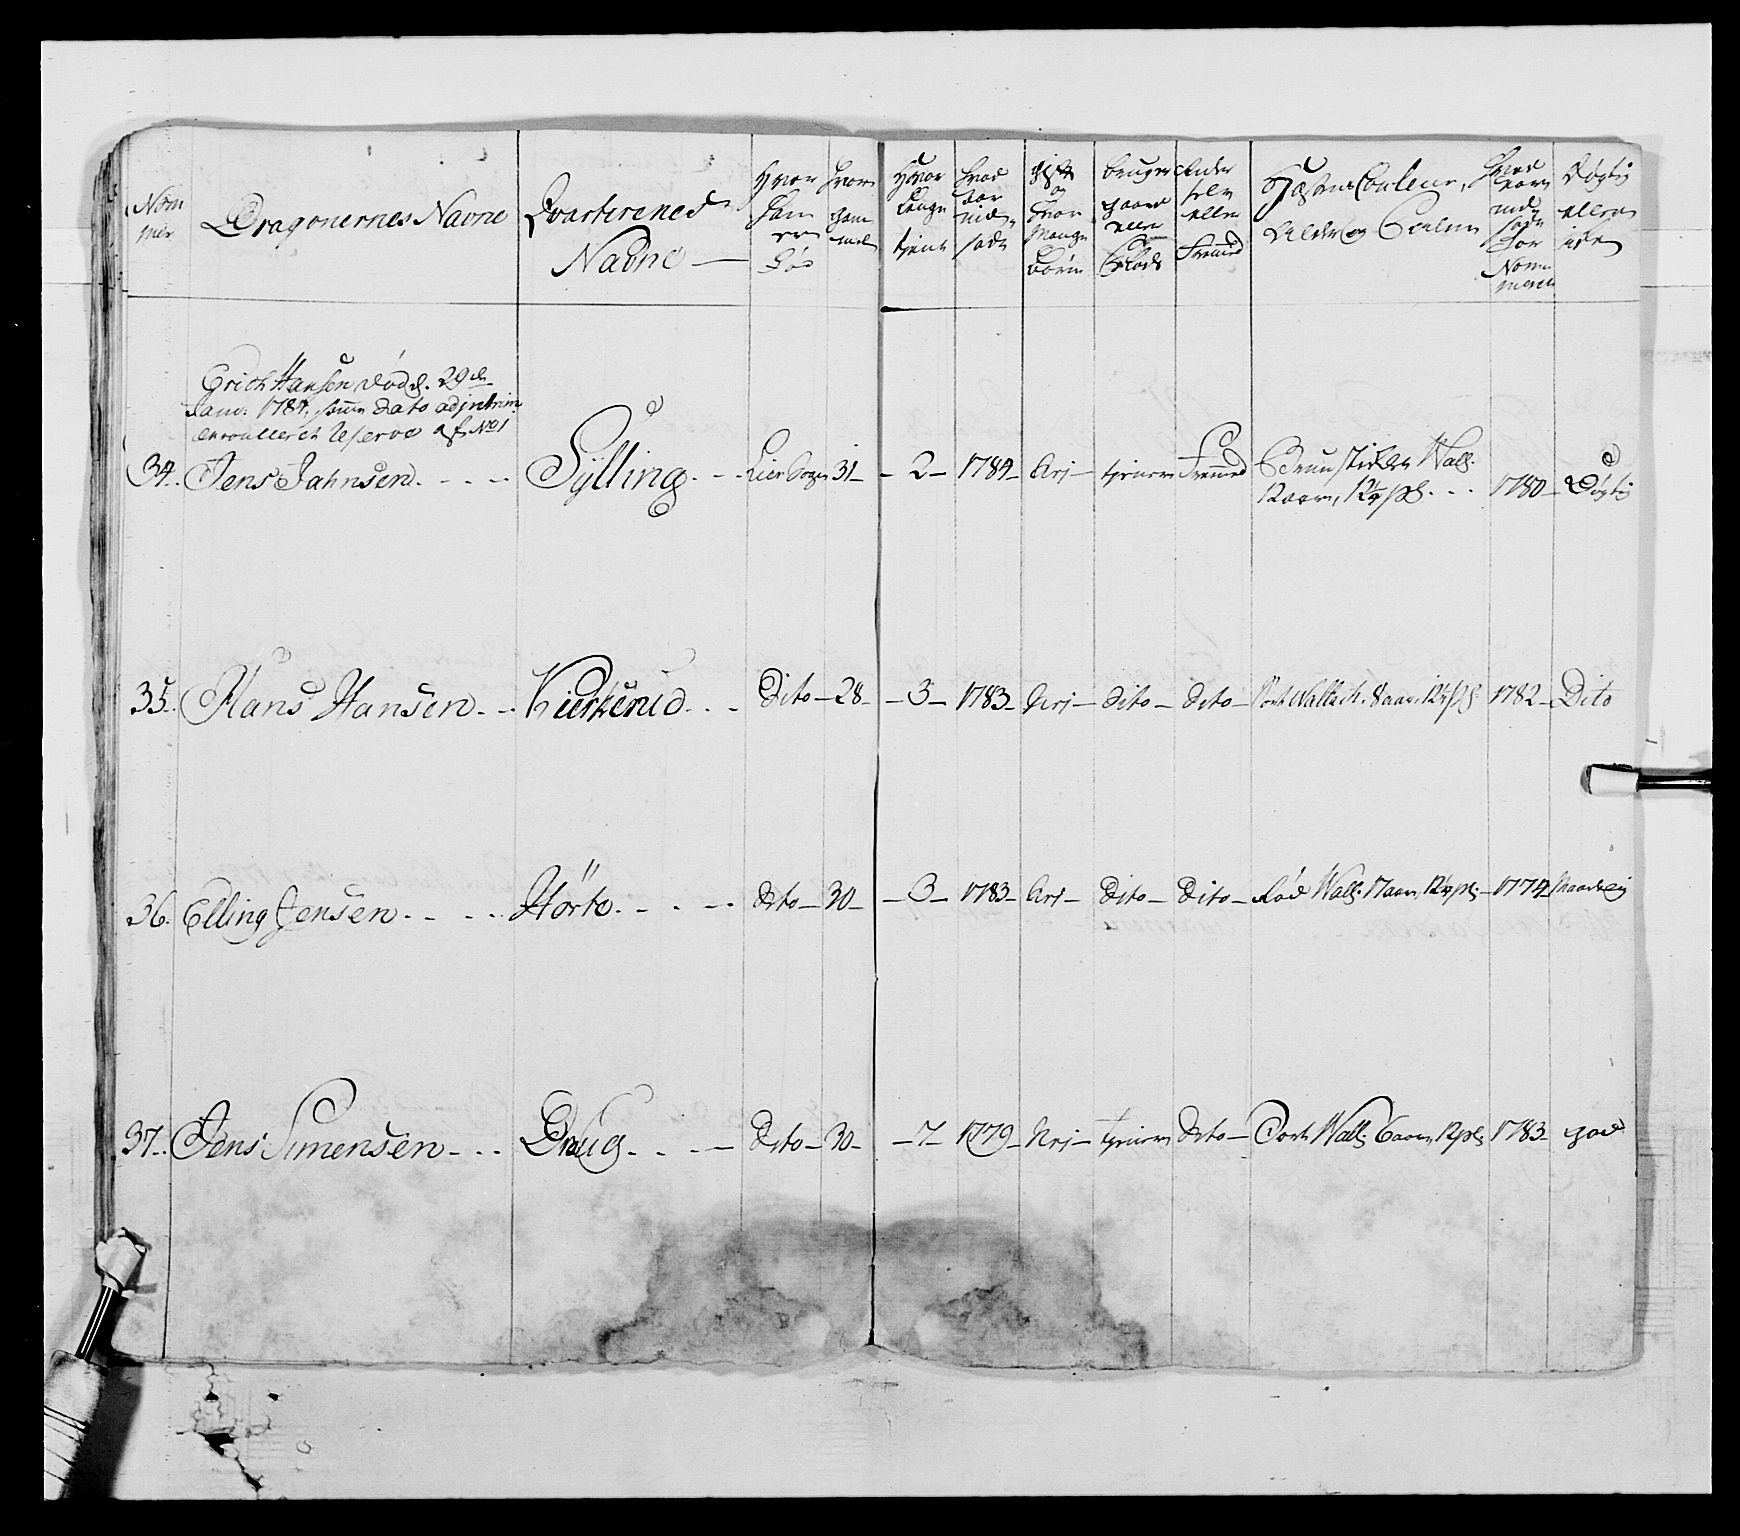 Nom
mer
Dragonernes Navne
Qvarterenes
Navne —
Hvor
han
er
Fød
hvor
gam
mel
Hvor
Længe
tient
hvad
aar
ind
sadt
gift
og
hvor
Mange
Børn
bruger
gaard
eller
Plads
Rider
selv
eller
Fremmed
Hæstens Couleur,
Alder og
Hvad
aar
ind
sadt
for
Nom
meren
Døgtig
eller
ikke
Erich Hansen død d. 29de
Janu: 1784, samme dato
enroulleret Reserve af No 1
34. Jens Jahnsen. - - - Sylling. - - Lier Sogn 31 - - 2 - 1784 - Nei - tjener Fremmed Brunstiernet Wall:
12 aar, 12¼ pl. - - 1780 - Døgtig
35. Hans Hansen. - - Kierkerud. - - Dito - 28 - - 3 - 1783 - Nei - dito - dito - Sort Wallach. 8 aar, 12¼ pl 1782 - Dito
36. Elling Jensen. - - - Hørte. - - - dito - 30 - - 3 - 1783 - Nei - Dito - Dito - Rød Wall: 17 aar, 12¼ pl: - 1774 -
37. Jens Simensen - - - Drug. - - - dito - 30 - - 7 - 1779 - Nei - tjener dito - Sort Wall: 6 aar, 12 pl: 1783 - god